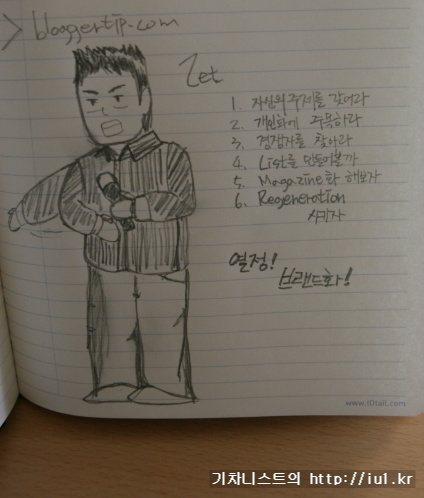 > bloggertip.com
Zet
1. 자신의 주제를 갖어라
2. 개인화에 주목하라
3. 경쟁자를 찾아라
4. List를 만들어볼까
5. Magazine화 해보자
6. Regeneration
시키자
열정!
브랜드화!
www.IDtail.com
기차니스트의 http://iu1.kr